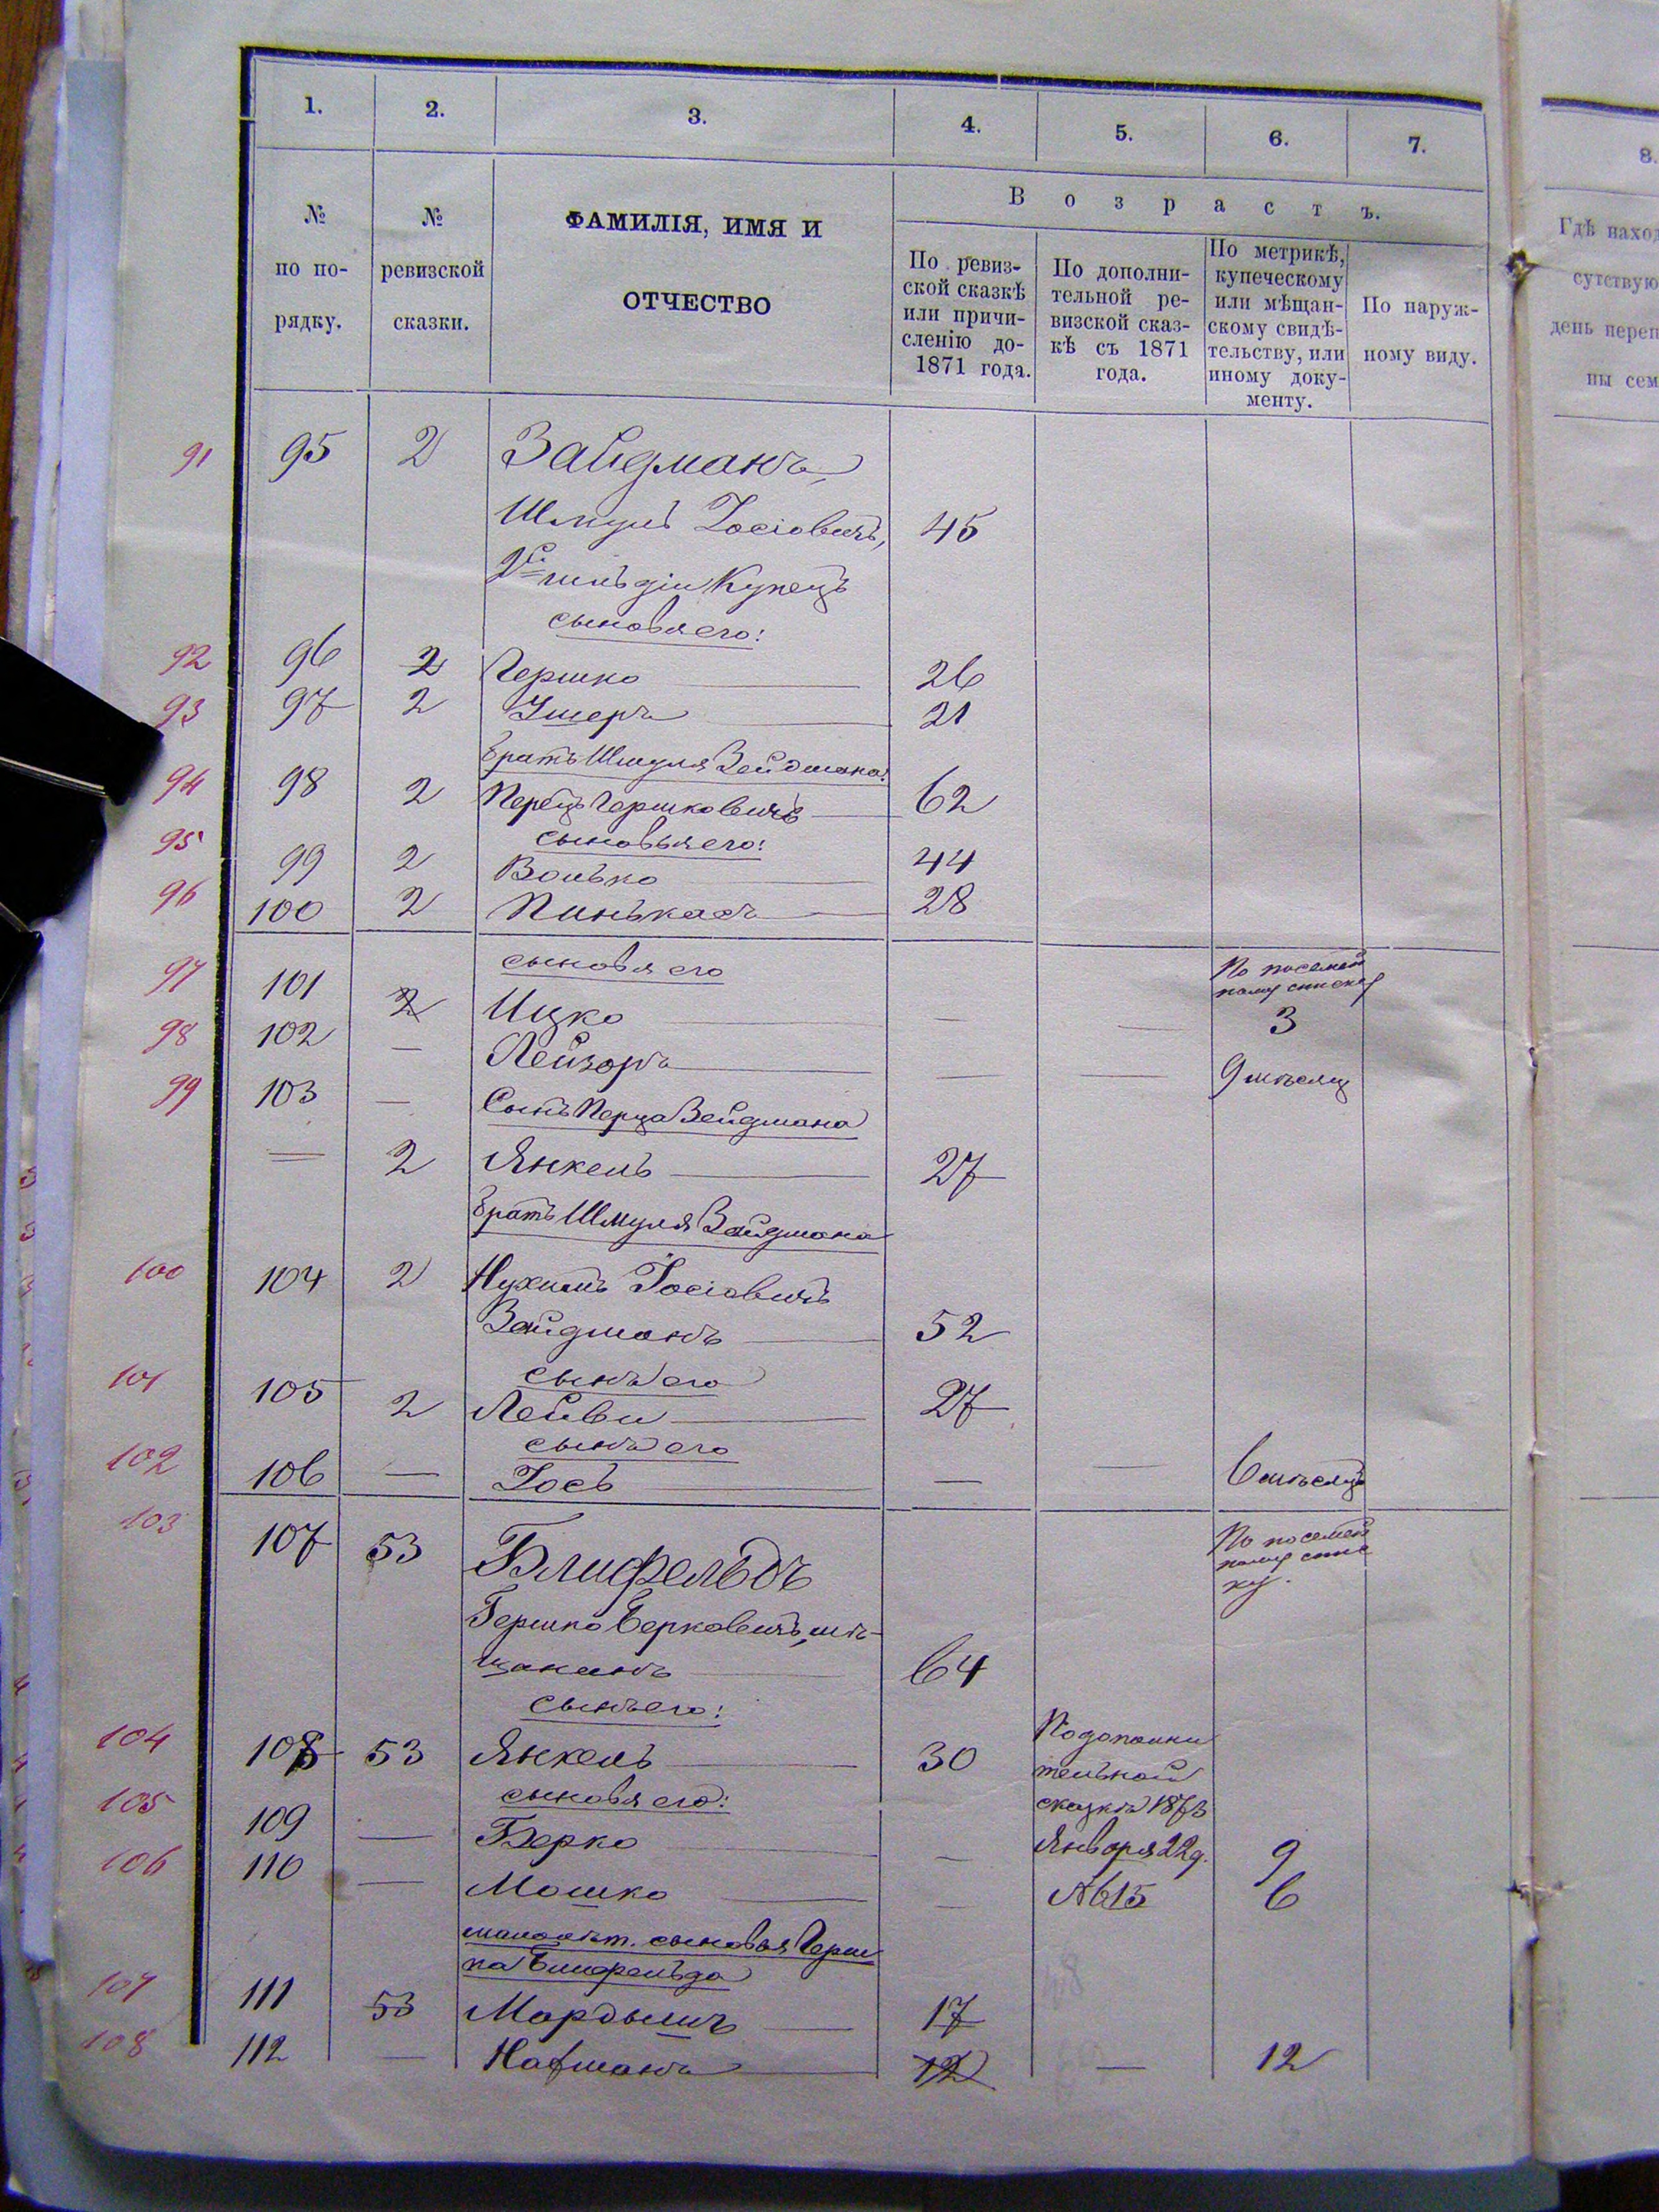 1. 2. 3. 4. 5. 6. 7.
8.
№ по по-рядку.
№ ревизской сказки.
ФАМИЛІЯ, ИМЯ И
ОТЧЕСТВО
Возрастъ.
По ревиз-
ской сказкѣ
или причи-
сленію до-
1871 года.
По дополни-
тельной ре-
визской сказ-
кѣ съ 1871
года.
По метрикѣ,
купеческому
или мѣщан-
скому свидѣ-
тельству, или
иному доку-
менту.
По наруж-
ному виду.
Гдѣ наход
сутствую
день переп
ны сем
91 95 2 Зайдманъ,
Шмуль Іосіовичъ, 45
2й гильдіи Купецъ
сыновя его:
92 96 2 Гершко 26
93 97 2 Ушеръ 21
братъ Шмуля Зейдмана:
94 98 2 Перецъ Гершковичъ 62
сыновья его:
95 99 2 Волько 44
96 100 2 Пинькасъ 28
сыновя его
По посемей
ному списку
97 101 2 Ицко — — 3
98 102 — Лейзоръ — — 9 мѣсяц
99 103 — Сынъ Перца Зейдмана
— 2 Янкель 27
братъ Шмуля Зайдмана
100 104 2 Нухимъ Іосіовичъ
Зайдманъ 52
сынъ его
101 105 2 Лейби 27
сынъ его
102 106 — Іось — — 6 мѣсяцъ
103 107 53 Блифельдъ
По посемей
ному спис
ку.
Гершко Берковичъ, мѣ-
щанинъ 64
сынъ его:
104 108 53 Янкель 30
По дополни
тельной
сказкѣ 1873
Января 22 д.
№ 15
сыновя его:
105 109 — Берко — 9
106 110 — Мошко — 6
малолѣт. сыновья Герш
ка Блифельда
107 111 53 Мордышъ 17
108 112 — Нафманъ 12 — 12